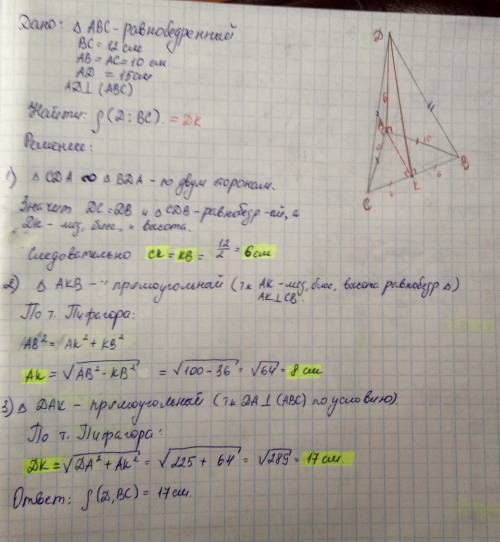 Дано: △ ABC - равнобедренный
BC = 12 см
AB = AC = 10 см
AD = 15 см
AD ⊥ (ABC)
Найти: ρ(D; BC) = DK
Решение:
1) △ CDA ∞ △ BDA - по двум сторонам.
Значит DC = DB и △ CDB - равнобедр-ый, а
DK - мед, бис, и высота.
Следовательно CK = KB = 12/2 = 6 см
2) △ AKB - прямоугольный (тк AK - мед, бис, высота равнобедр △)
AK ⊥ CB
По т. Пифагора:
AB² = AK² + KB²
AK = √AB² - KB² = √100 - 36 = √64 = 8 см
3) △ DAK - прямоугольный (тк DA ⊥ (ABC) по условию)
По т. Пифагора:
DK = √DA² + AK² = √225 + 64 = √289 = 17 см.
Ответ: ρ(D, BC) = 17 см.
D
A
10
B
C
K
6